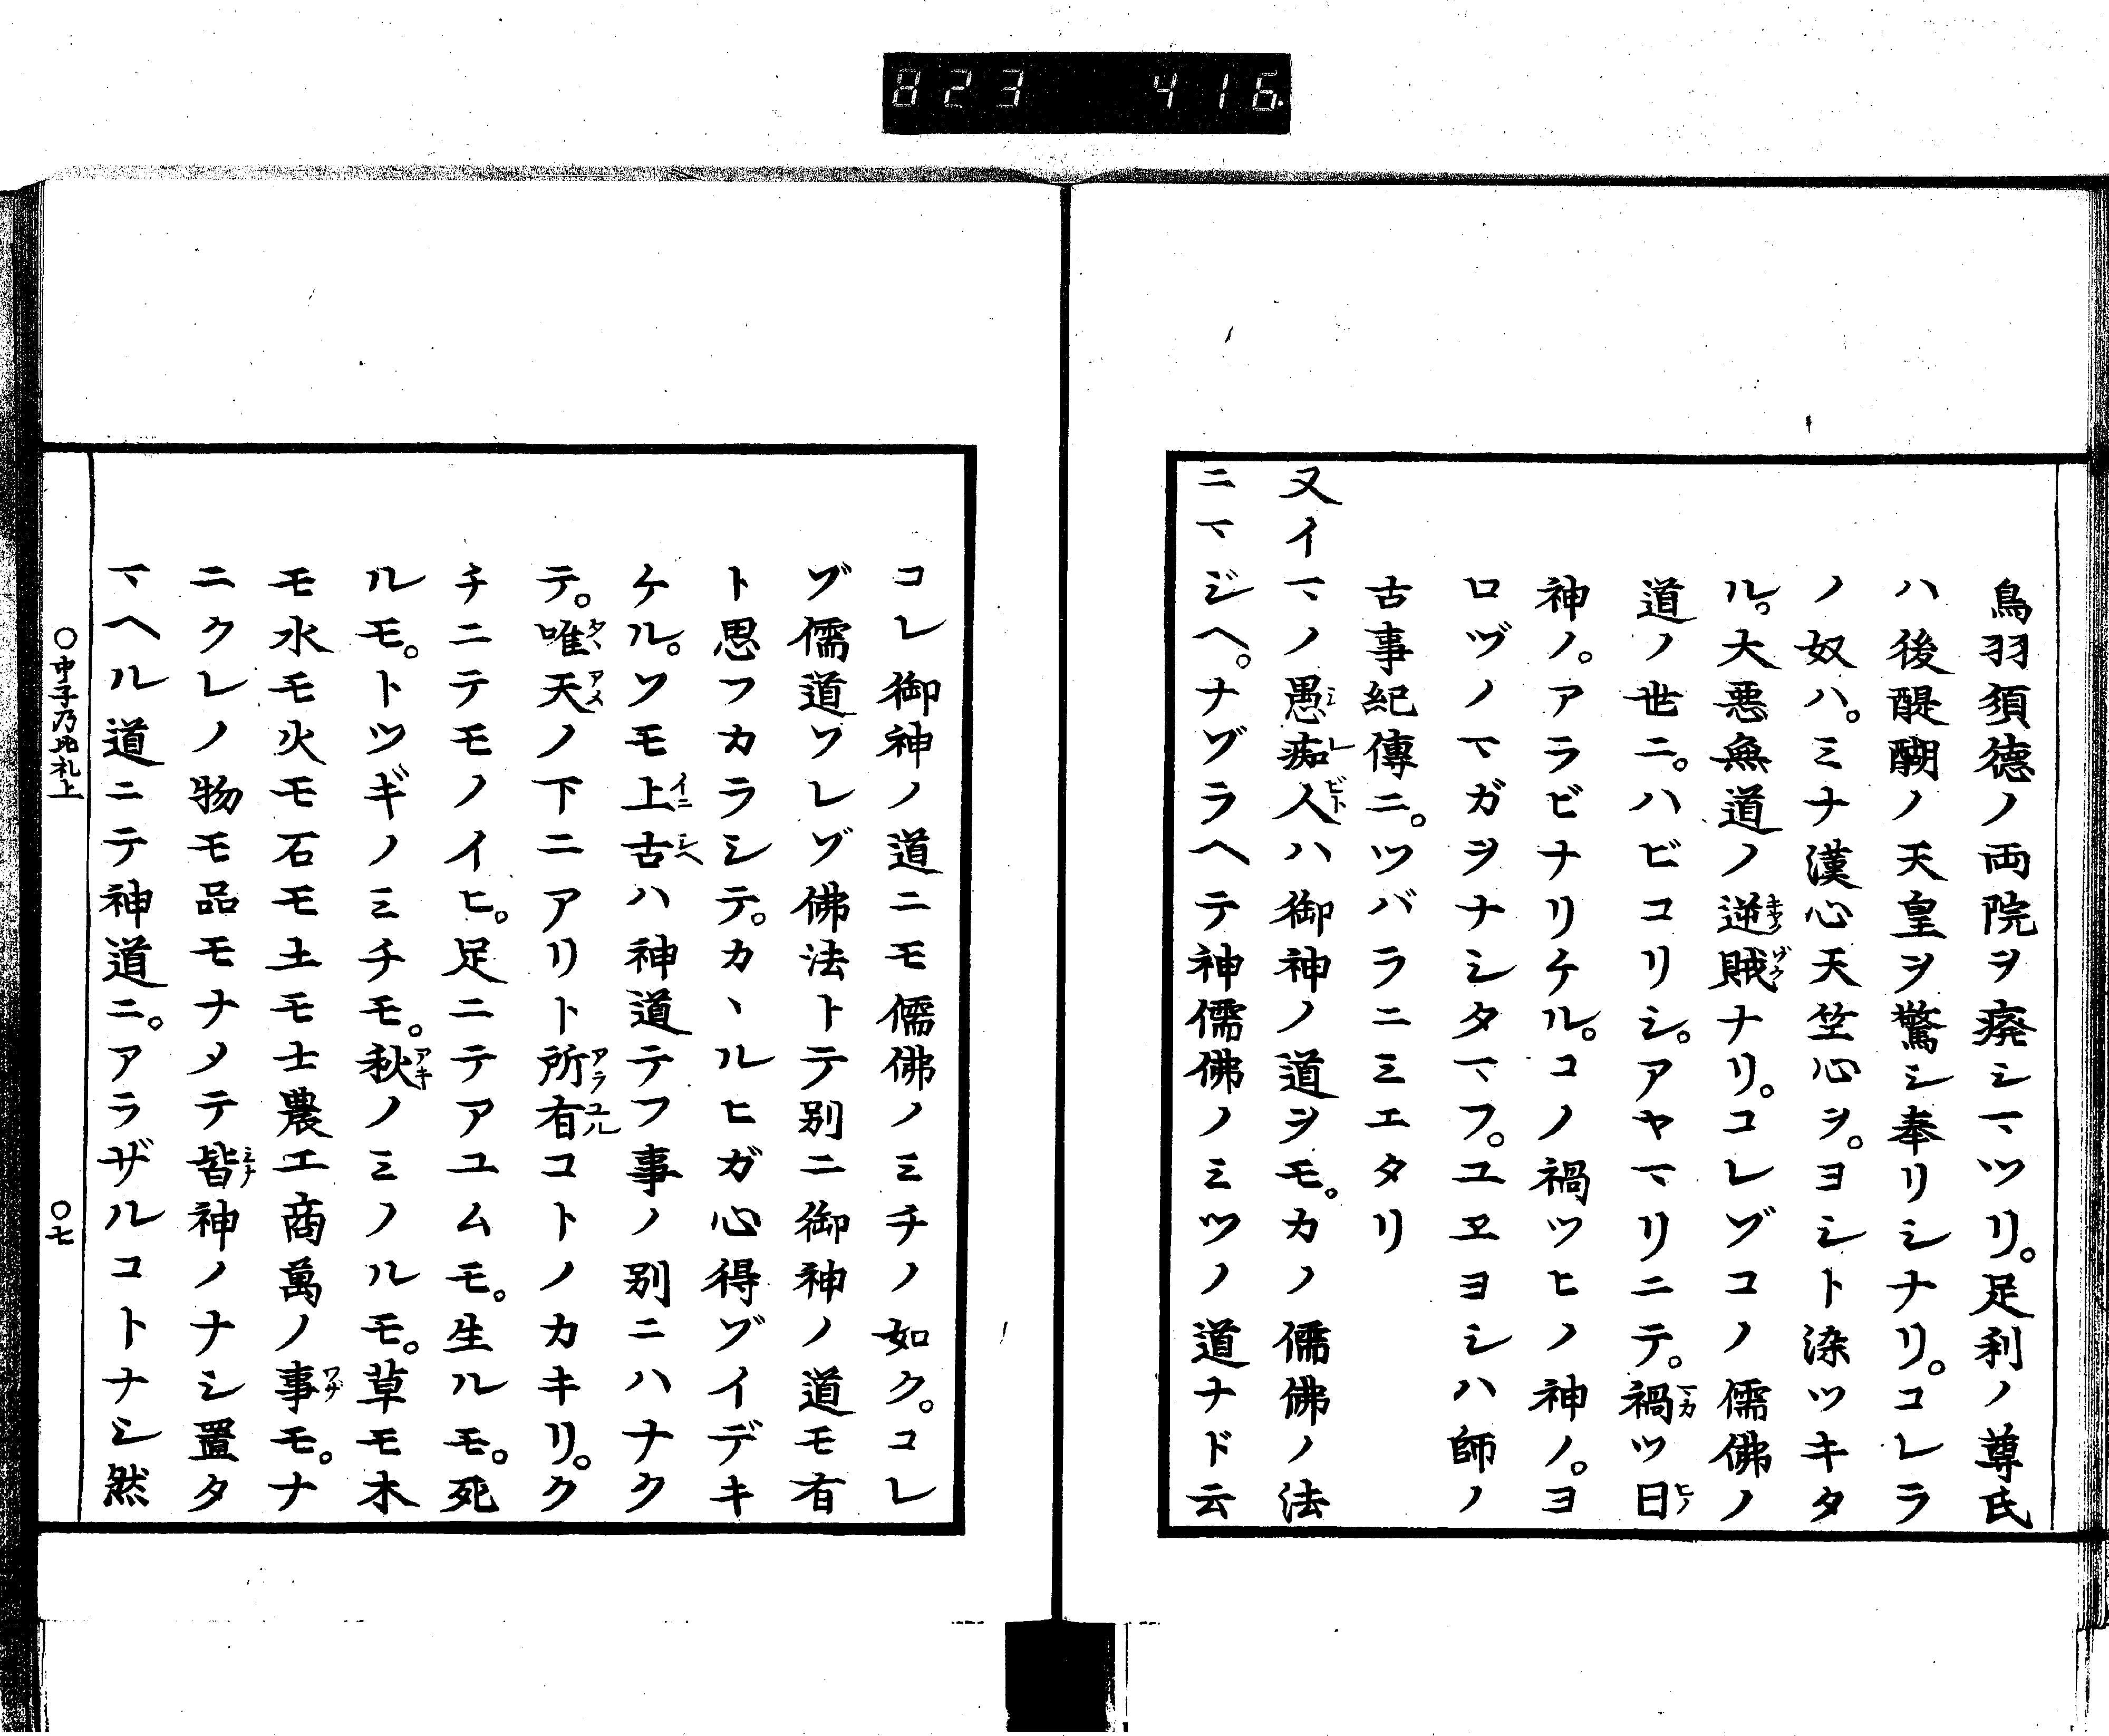 823 416.
鳥羽須徳ノ両院ヲ廃シマツリ。足利ノ尊氏
ハ後醍醐ノ天皇ヲ驚シ奉リシナリ。コレラ
ノ奴ハ。ミナ漢心天竺心ヲ。ヨシト染ツキタ
ル。大悪無道ノ逆賊ナリ。コレゾコノ儒佛ノ
道ノ世ニ。ハビコリシ。アヤマリニテ。禍ツ日
神ノ。アラビナリケル。コノ禍ツヒノ神ノ。ヨ
ロヅノマガヲナシタマフ。ユヱヨシハ師ノ
古事紀傳ニ。ツバラニミエタリ
又イマノ愚痴人ハ御神ノ道ヲモ。カノ儒佛ノ法
ニマジヘ。ナゾラヘテ神儒佛ノミツノ道ナド云
コレ御神ノ道ニモ儒佛ノミチノ如ク。コレ
ゾ儒道ソレゾ佛法トテ別ニ御神ノ道モ有
ト思フカラシテ。カヽルヒガ心得ゾイデキ
ケル。ソモ上古ハ神道テフ事ノ別ニハナク
テ。唯天ノ下ニアリト所有コトノカキリ。ク
チニテモノイヒ。足ニテアユムモ。生ルモ。死
ルモ。トツギノミチモ。秋ノミノルモ。草モ木
モ水モ火モ石モ土モ士農工商萬ノ事モ。ナ
ニクレノ物モ品モナメテ皆神ノナシ置タ
マヘル道ニテ神道ニ。アラザルコトナシ然
○申子乃比礼上 ○七